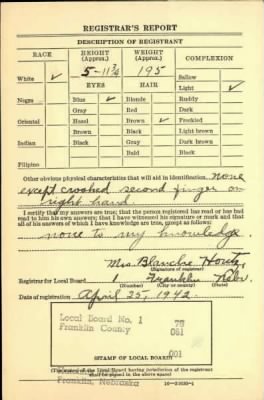 REGISTRAR'S REPORT
DESCRIPTION OF REGISTRANT
RACE
HEIGHT
(Approx.)
WEIGHT
(Approx.)
COMPLEXION
White ✓
5-11 3/4
195
Sallow
EYES
HAIR
Light ✓
Negro
Blue ✓
Blonde
Ruddy
Gray
Red
Dark
Oriental
Hazel
Brown ✓
Freckled
Brown
Black
Light brown
Indian
Black
Gray
Dark brown
Bald
Black
Filipino
Other obvious physical characteristics that will aid in identification none
except crooked second finger on
right hand
I certify that my answers are true; that the person registered has read or has had
read to him his own answers; that I have witnessed his signature or mark and that
all of his answers of which I have knowledge are true, except as follows:
none to my knowledge.
Mrs. Blanche
(Signature of registrar)
Registrar for Local Board 1 Franklin Nebr.
(Number) (City or county) (State)
Date of registration April 25, 1942
Local Board No. 1
Franklin County
001
STAMP OF LOCAL BOARD
(The stamp of the Local Board having jurisdiction of the registrant
shall be placed in the above space)
Franklin, Nebraska